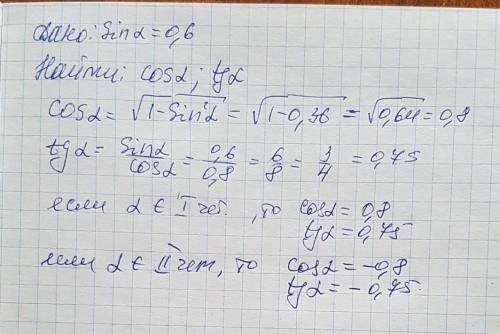 Дано: Sinα = 0,6
Найти: cosα; tgα
cosα = √(1-Sin²α) = √(1-0,36) = √0,64 = 0,8
tgα = Sinα/cosα = 0,6/0,8 = 6/8 = 3/4 = 0,75
если α ∈ I чет., то cosα = 0,8
tgα = 0,75
если α ∈ II чет, то cosα = -0,8
tgα = -0,75.